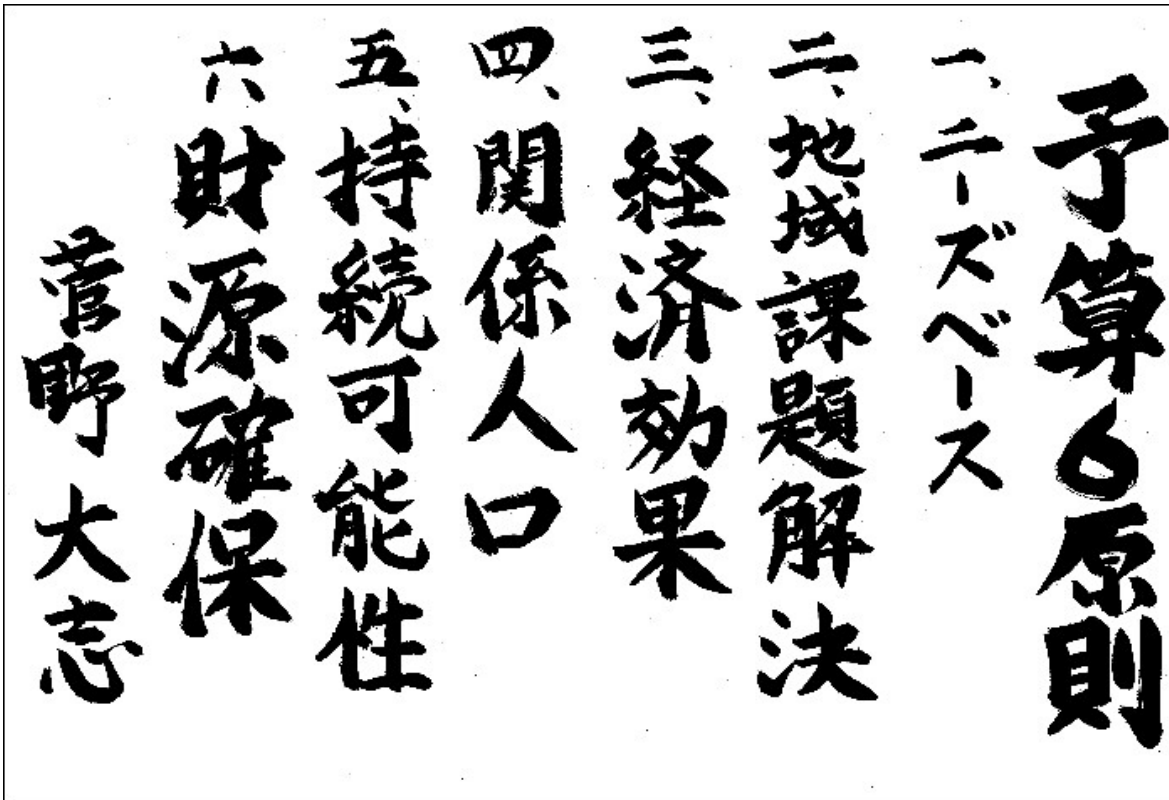 予算6原則
一、ニーズベース
二、地域課題解決
三、経済効果
四、関係人口
五、持続可能性
六財源確保
菅野大志